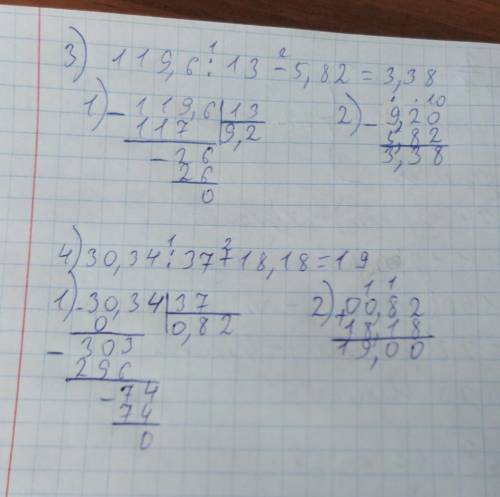 3) 119,6 : 13 - 5,82 = 3,38
1 2
1) - 119,6 | 13
117 | 9,2
- 26
26
0
2) - 9,20
10
5,82
3,38
4) 30,34 : 37 + 18,18 = 19
1 2
1) - 30,34 | 37
0 | 0,82
- 303
296
- 74
74
0
2) + 00,82
1 1
18,18
19,00